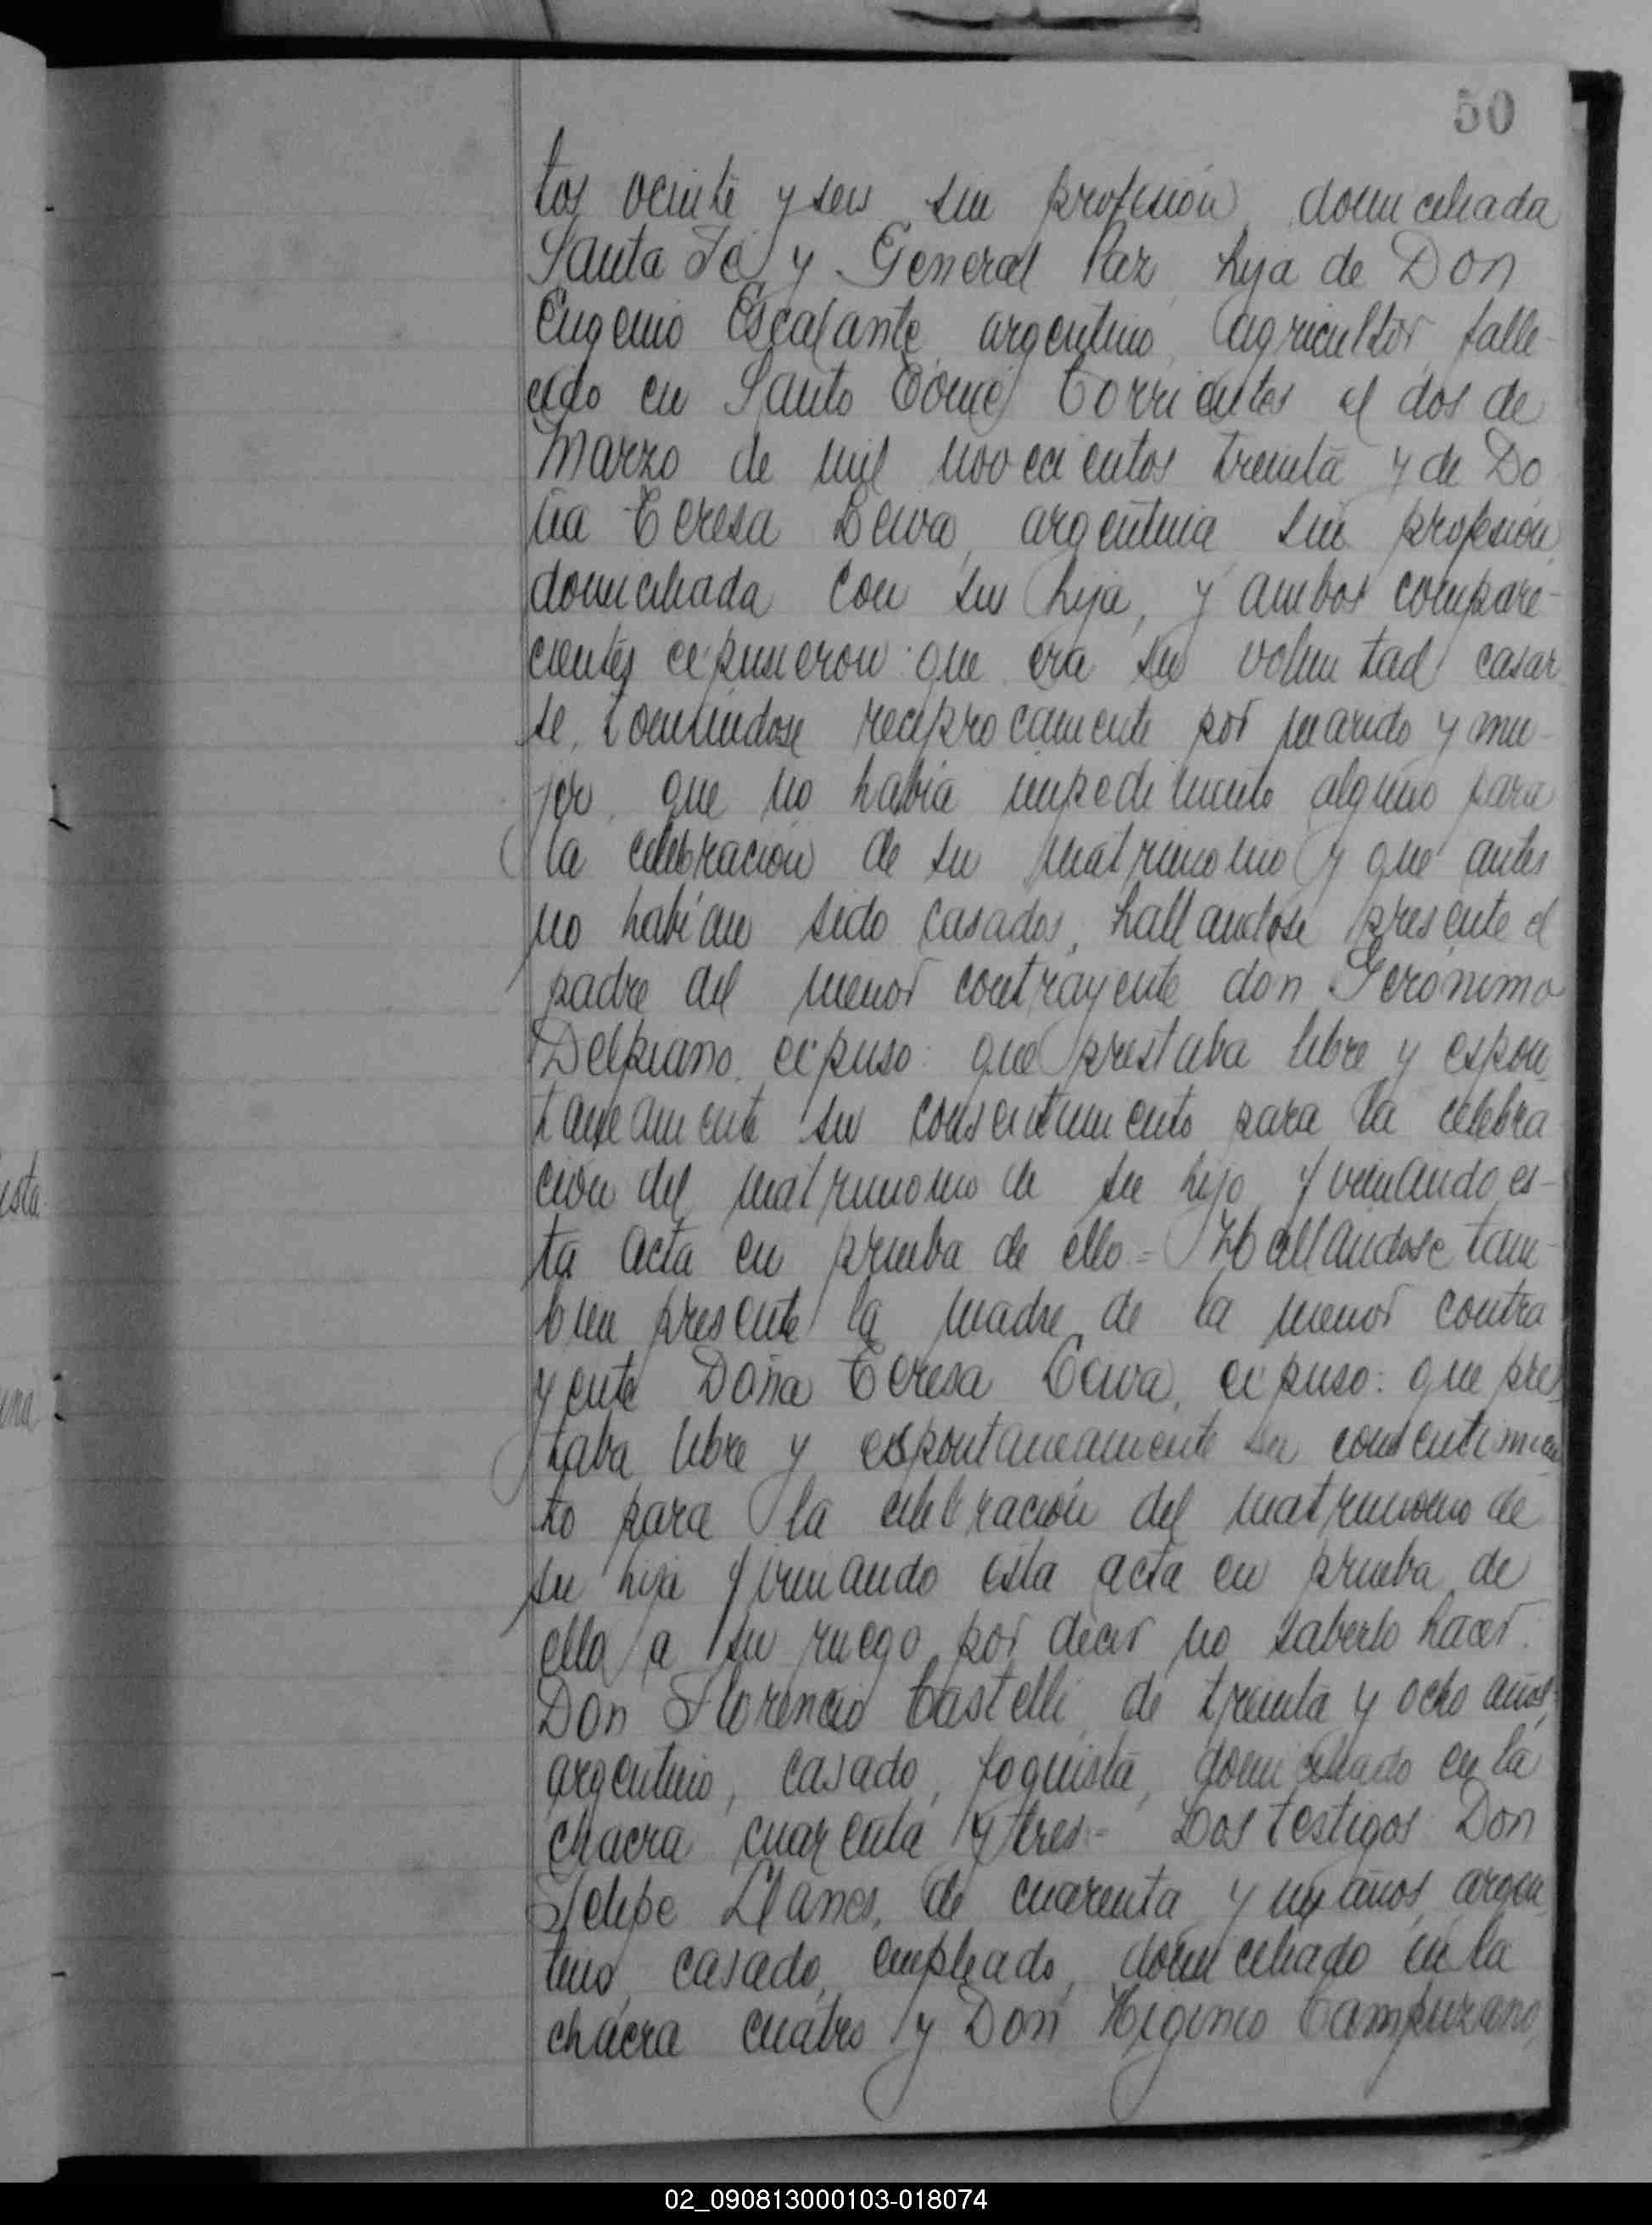 50
tos veinte y seis sin profesión domiciliada
Santa Fé y General Paz, hija de Don
Eugenio Escalante, argentino, agricultor, falle-
cido en Santo Tomé Corrientes el dos de
Marzo de mil novecientos treinta y de Do
ña Teresa argentina sin profesión,
domiciliada con su hija, y ambos compare-
cientes expusieron que era su voluntad casar
se, tomándose reciprocamente por marido y mu-
jer, que no había impedimento alguno para
la celebración de su matrimonio y que antes
no habían sido casados, hallandose presente el
padre del menor contrayente don Gerónimo
Delpiano, expuso: que prestaba libre y espon
taneamente su consentimiento para la celebra
ción del matrimonio de su hijo firmando es-
ta acta en prueba de ello = Hallandose tam-
bien presente la madre de la menor contra
yente Doña Teresa expuso: que pres
taba libre y espontaneamente su consentimien
to para la celebración del matrimonio de
su hija firmando esta acta en prueba de
ello a su ruego por decir no saberlo hacer.
Don Florencio Castelli de treinta y ocho años,
argentino, casado, foguista, domiciliado en la
chacra cuarenta y tres- Los testigos Don
Felipe Llanes, de cuarenta y un años, argen
tino, casado, empleado, domiciliado en la
chacra cuatro y Don Higinio Campuzano,
ista
una
02_090813000103-018074